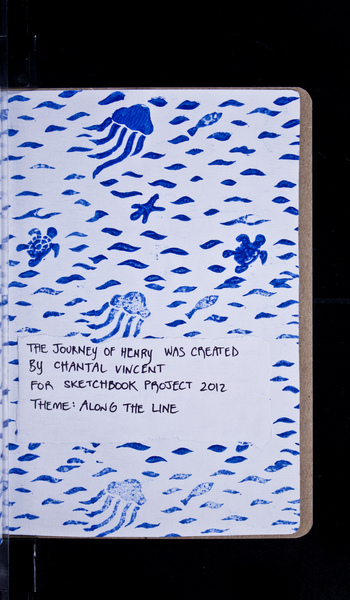 THE JOURNEY OF HENRY WAS CREATED
BY CHANTAL VINCENT
FOR SKETCHBOOK PROJECT 2012
THEME: ALONG THE LINE